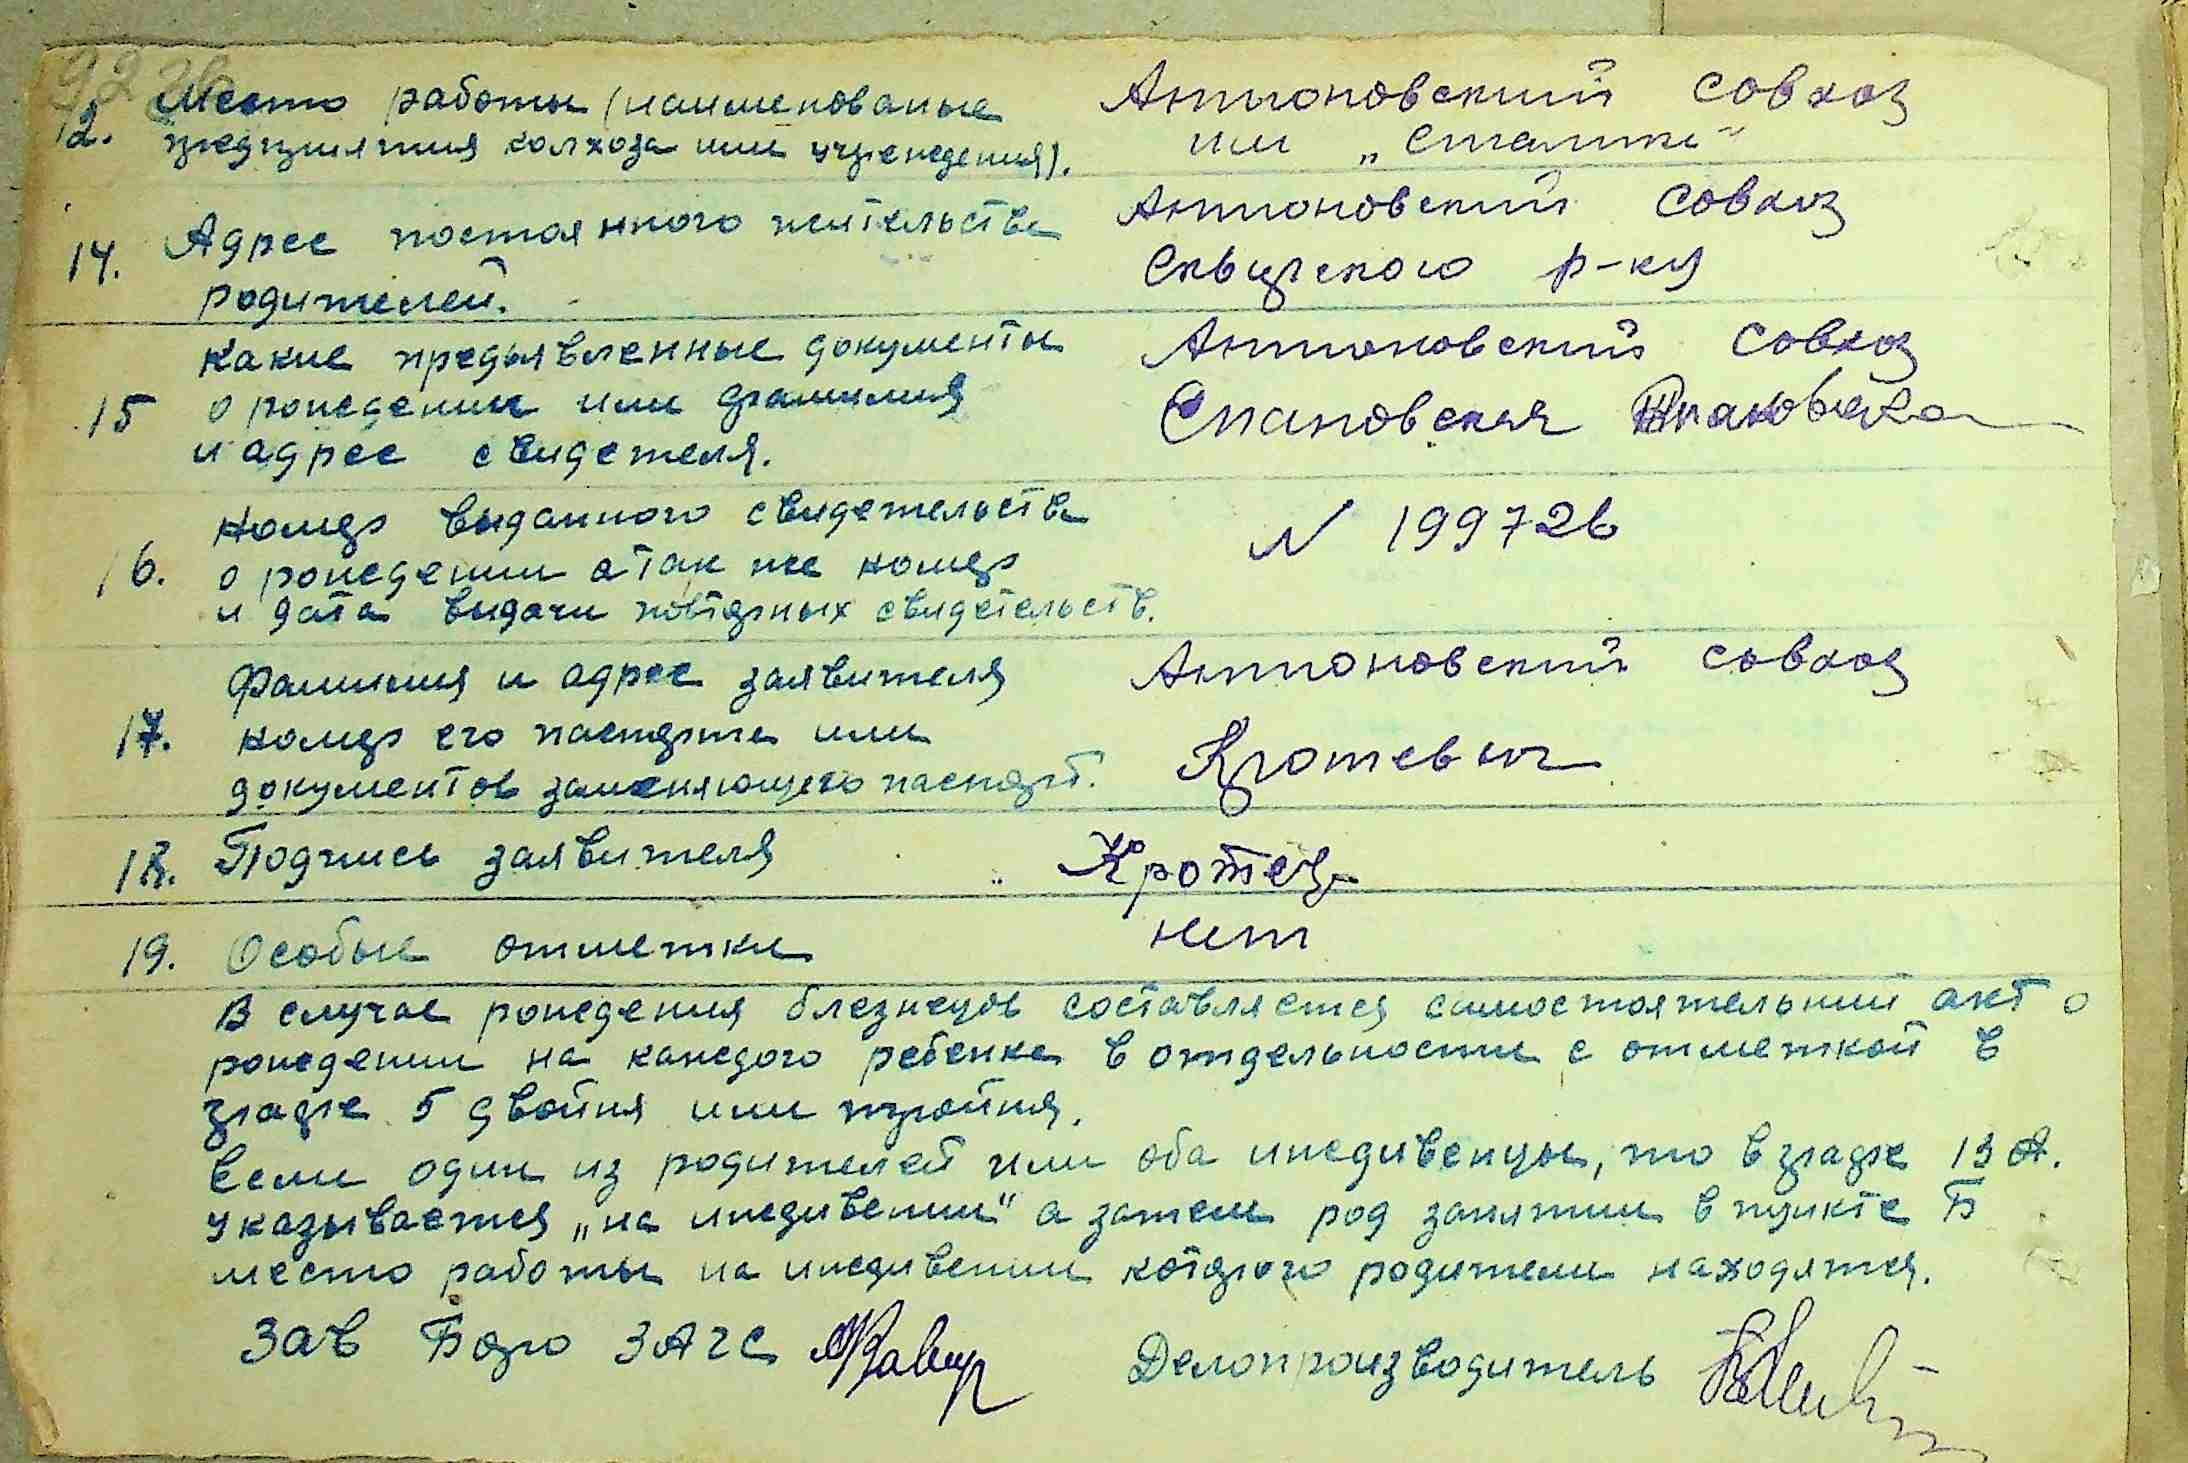 Место работы (наименованые Антоновский совхоз
12. предприятия колхоза или учреждения). им „Сталина"
Адрес постоянного жительства Антоновский совхоз
14. родителей. Сквирского р-на
Какие предъявленные документы Антоновский совхоз
15 о рождении или фамилия Спановская
и адрес свидетеля.
Номер выданного свидетельства N 199726
16. о рождении а так же номер
и дата выдачи повторных свидетельств.
Фамилия и адрес заявителя Антоновский совхоз
17. номер его паспорта или Кротевич
документов заменяющего паспорт.
18. Подпись заявителя Кротев
19. Особые отметки нет
В случае рождения близнецов составляется самостоятельний акт о
рождении на каждого ребенка в отдельности с отметкой в
графе 5 двойня или тройня.
Если один из родителей или оба иждивенцы, то в графе 13 А.
указывается „на иждивении" а затем род занятии в пункте Б
место работы на иждивении которого родители находятся.
Зав Бюро ЗАГС Делопроизводитель